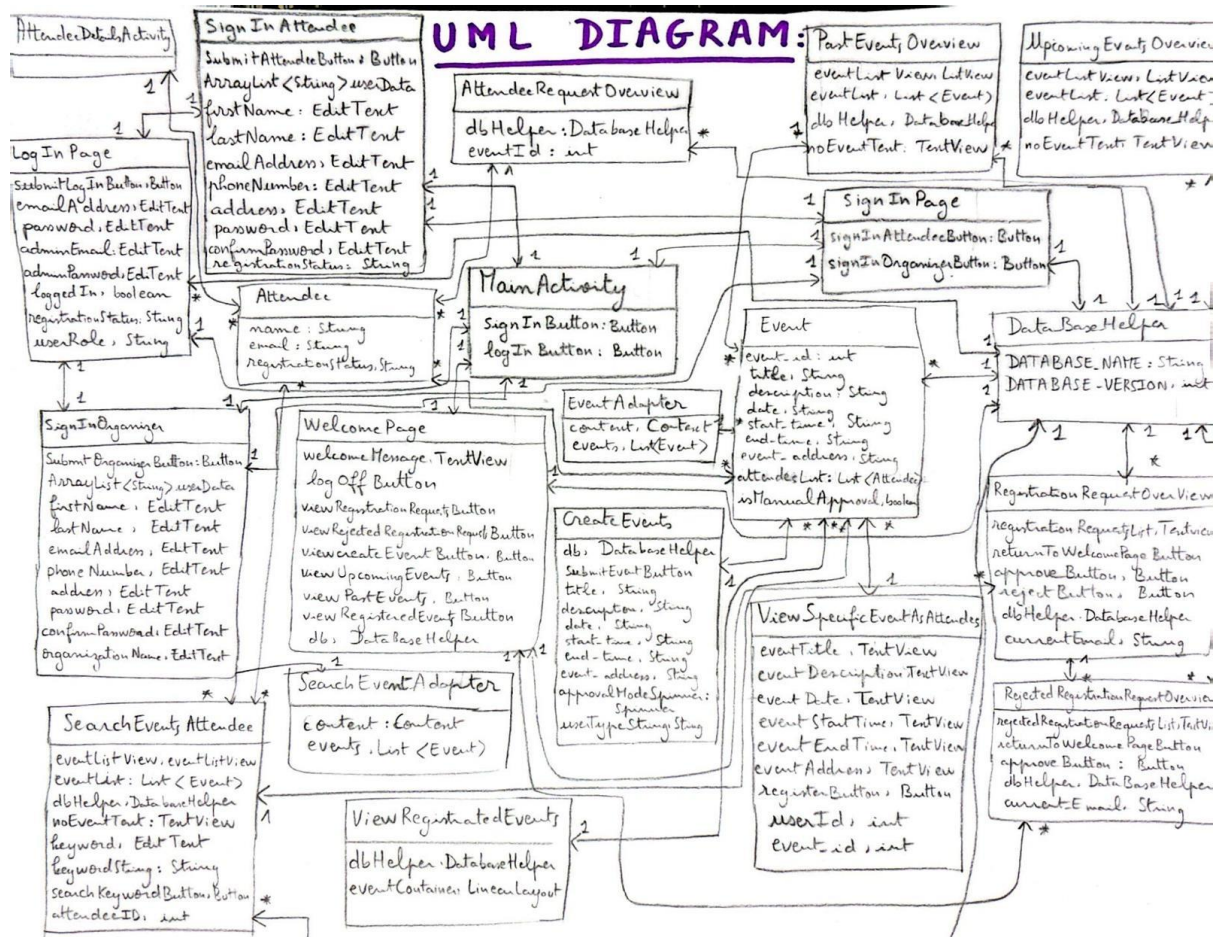 UML DIAGRAM:
AttendeeDetailsActivity
Sign In Attendee
SubmitAttendeeButton : Button
ArrayList <String> userData
firstName : EditText
lastName : EditText
emailAddress : EditText
phoneNumber : EditText
address : EditText
password : EditText
confirmPassword : EditText
registrationStatus : String
AttendeeRequestOverview
dbHelper : DatabaseHelper
eventId : int
Past Events Overview
eventList View : ListView
eventList : List <Event>
dbHelper : DatabaseHelpe
noEventText : TextView
Upcoming Events Overview
eventList View : List View
eventList : List <Event
dbHelper : DatabaseHelp
noEventText : TextView
Log In Page
submitLogInButton : Button
emailAddress : EditText
password : EditText
adminEmail : EditText
adminPassword : EditText
loggedIn : boolean
registrationStatus : String
userRole : String
Sign In Page
signInAttendeeButton : Button
signInOrganizerButton : Button
Attendee
name : String
email : String
registrationStatus : String
Main Activity
SignInButton : Button
logInButton : Button
Event
event_id : int
title : String
description : String
date : String
start-time : String
end-time : String
event-address : String
attendeeList : List <Attendee>
isManualApproval : boolean
DataBaseHelper
DATABASE_NAME : String
DATABASE-VERSION : int
Event Adapter
context : Context
events : List<Event>
SignInOrganizer
Submit OrganizerButton : Button
ArrayList <String> userData
firstName : EditText
last Name : EditText
emailAddress : EditText
phone Number : EditText
address : EditText
password : EditText
confirmPassword : EditText
organizationName : EditText
Welcome Page
welcomeMessage : TextView
log Off Button
viewRegistrationRequestButton
viewRejectedRegistrationRequestButton
viewcreate Event Button : Button
view UpcomingEvents : Button
view PastEvents : Button
view RegisteredEvents Button
db : DataBaseHelper
Create Events
db : DatabaseHelper
SubmitEventButton
title : String
description : String
date : String
start-time : String
end-time : String
event-address : String
approvalModeSpinner :
Spinner
userTypeString : String
Registration Request OverView
registration RequestList : Textview
returnToWelcomePage Button
approve Button : Button
reject Button : Button
dbHelper : DatabaseHelper
currentEmail : String
View Specific Event As Attendee
eventTitle : TextView
event Description : TextView
event Date : TextView
event StartTime : TextView
event EndTime : TextView
event Address : TextView
registerButton : Button
userId : int
event_id : int
Rejected RegistrationRequestOverview
rejectedRegistrationRequestsList : TextVi
returnToWelcome PageButton
approve Button : Button
dbHelper : DataBaseHelper
current-Email : String
Search Event Adapter
content : Content
events : List <Event>
Search Events Attendee
eventListView : eventListView
eventList : List <Event>
dbHelper : DatabaseHelper
noEventText : TextView
keyword : EditText
keywordString : String
searchKeywordButton : Button
attendeeID : int
View RegistratedEvents
dbHelper : DatabaseHelper
eventContainer : LinearLayout